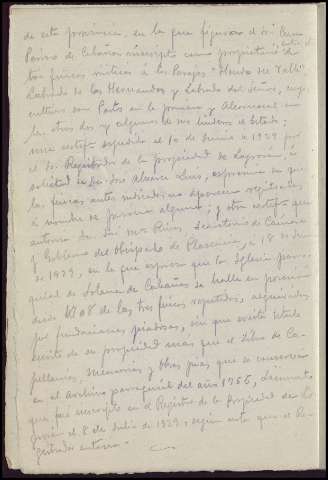 de esta provincia, en la que figuran el Sr. Cura
Párroco de Cabañas inscripto como propietario de
las fincas rústicas á los parajes "Honda del Valle"
Labrado de las Hermandas y Labrado del Señor, cuyo
cultivo son Pasto en la primera y
las otras dos y algunos de sus linderos el Estado;
una certif. expedida el 10 de Junio de 1929 por
el Sr. Registrador de la propiedad de Logrosán, á
solicitud de Dn. José Alvarez Luis, expresiva de que
las fincas antes indicadas no aparecen registradas
á nombre de persona alguna; y otra certif. que
autoriza Dn. José Mª Rivas, Secretario de Cámara
y Gobierno del Obispado de Plasencia, á 18 de Junio
de 1929, en la que expresa que la Iglesia parro-
quial de Solana de Cabañas se halla en posesión
desde 1708 de las tres fincas reputadas, adquiridas
por fundaciones piadosas, sin que exista título
escrito de su propiedad más que el Libro de Ca-
pellanías, Memorias y Obras pías que se conserva
en el Archivo parroquial del año 1755, documento
que fué inscripto en el Registro de la Propiedad de Lo-
grosán el 8 de Julio de 1929, según nota que el Re-
gistrador autoriza.